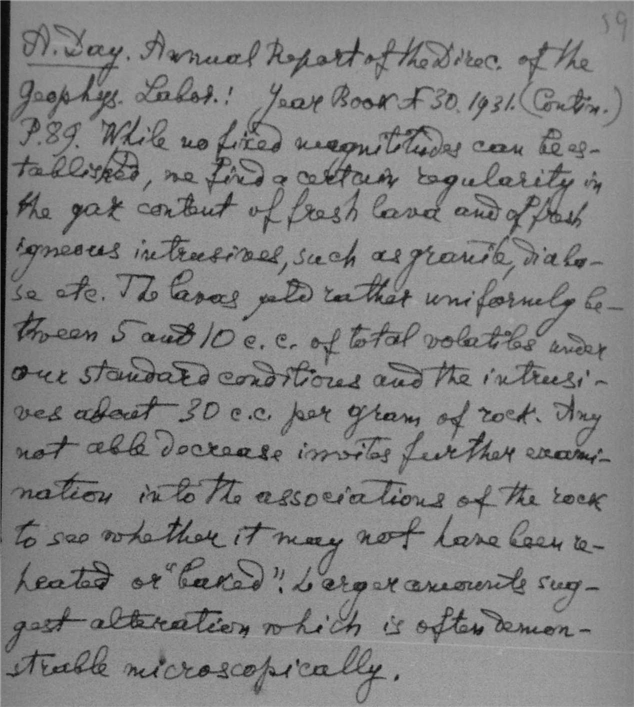 59
A. Day. Annual Report of the Direc. of the
Geophys. Labor.: Year Book N 30. 1931. (Contin.)
P. 89. While no fixed magnitudes can be es-
tablished, we find a certain regularity in
the gas content of fresh lava and of fresh
igneous intrusives, such as granite, diaba-
se etc. The lavas yeld rather uniformly be-
tween 5 and 10 c.c. of total volatiles under
our standard conditions and the intrusi-
ves about 30 c.c. per gram of rock. Any
not able decrease invites further exami-
nation into the associations of the rock
to see whether it may not have been re-
heated or "baked". Larger amounts sug-
gest alteration which is often demon-
strable microscopically.